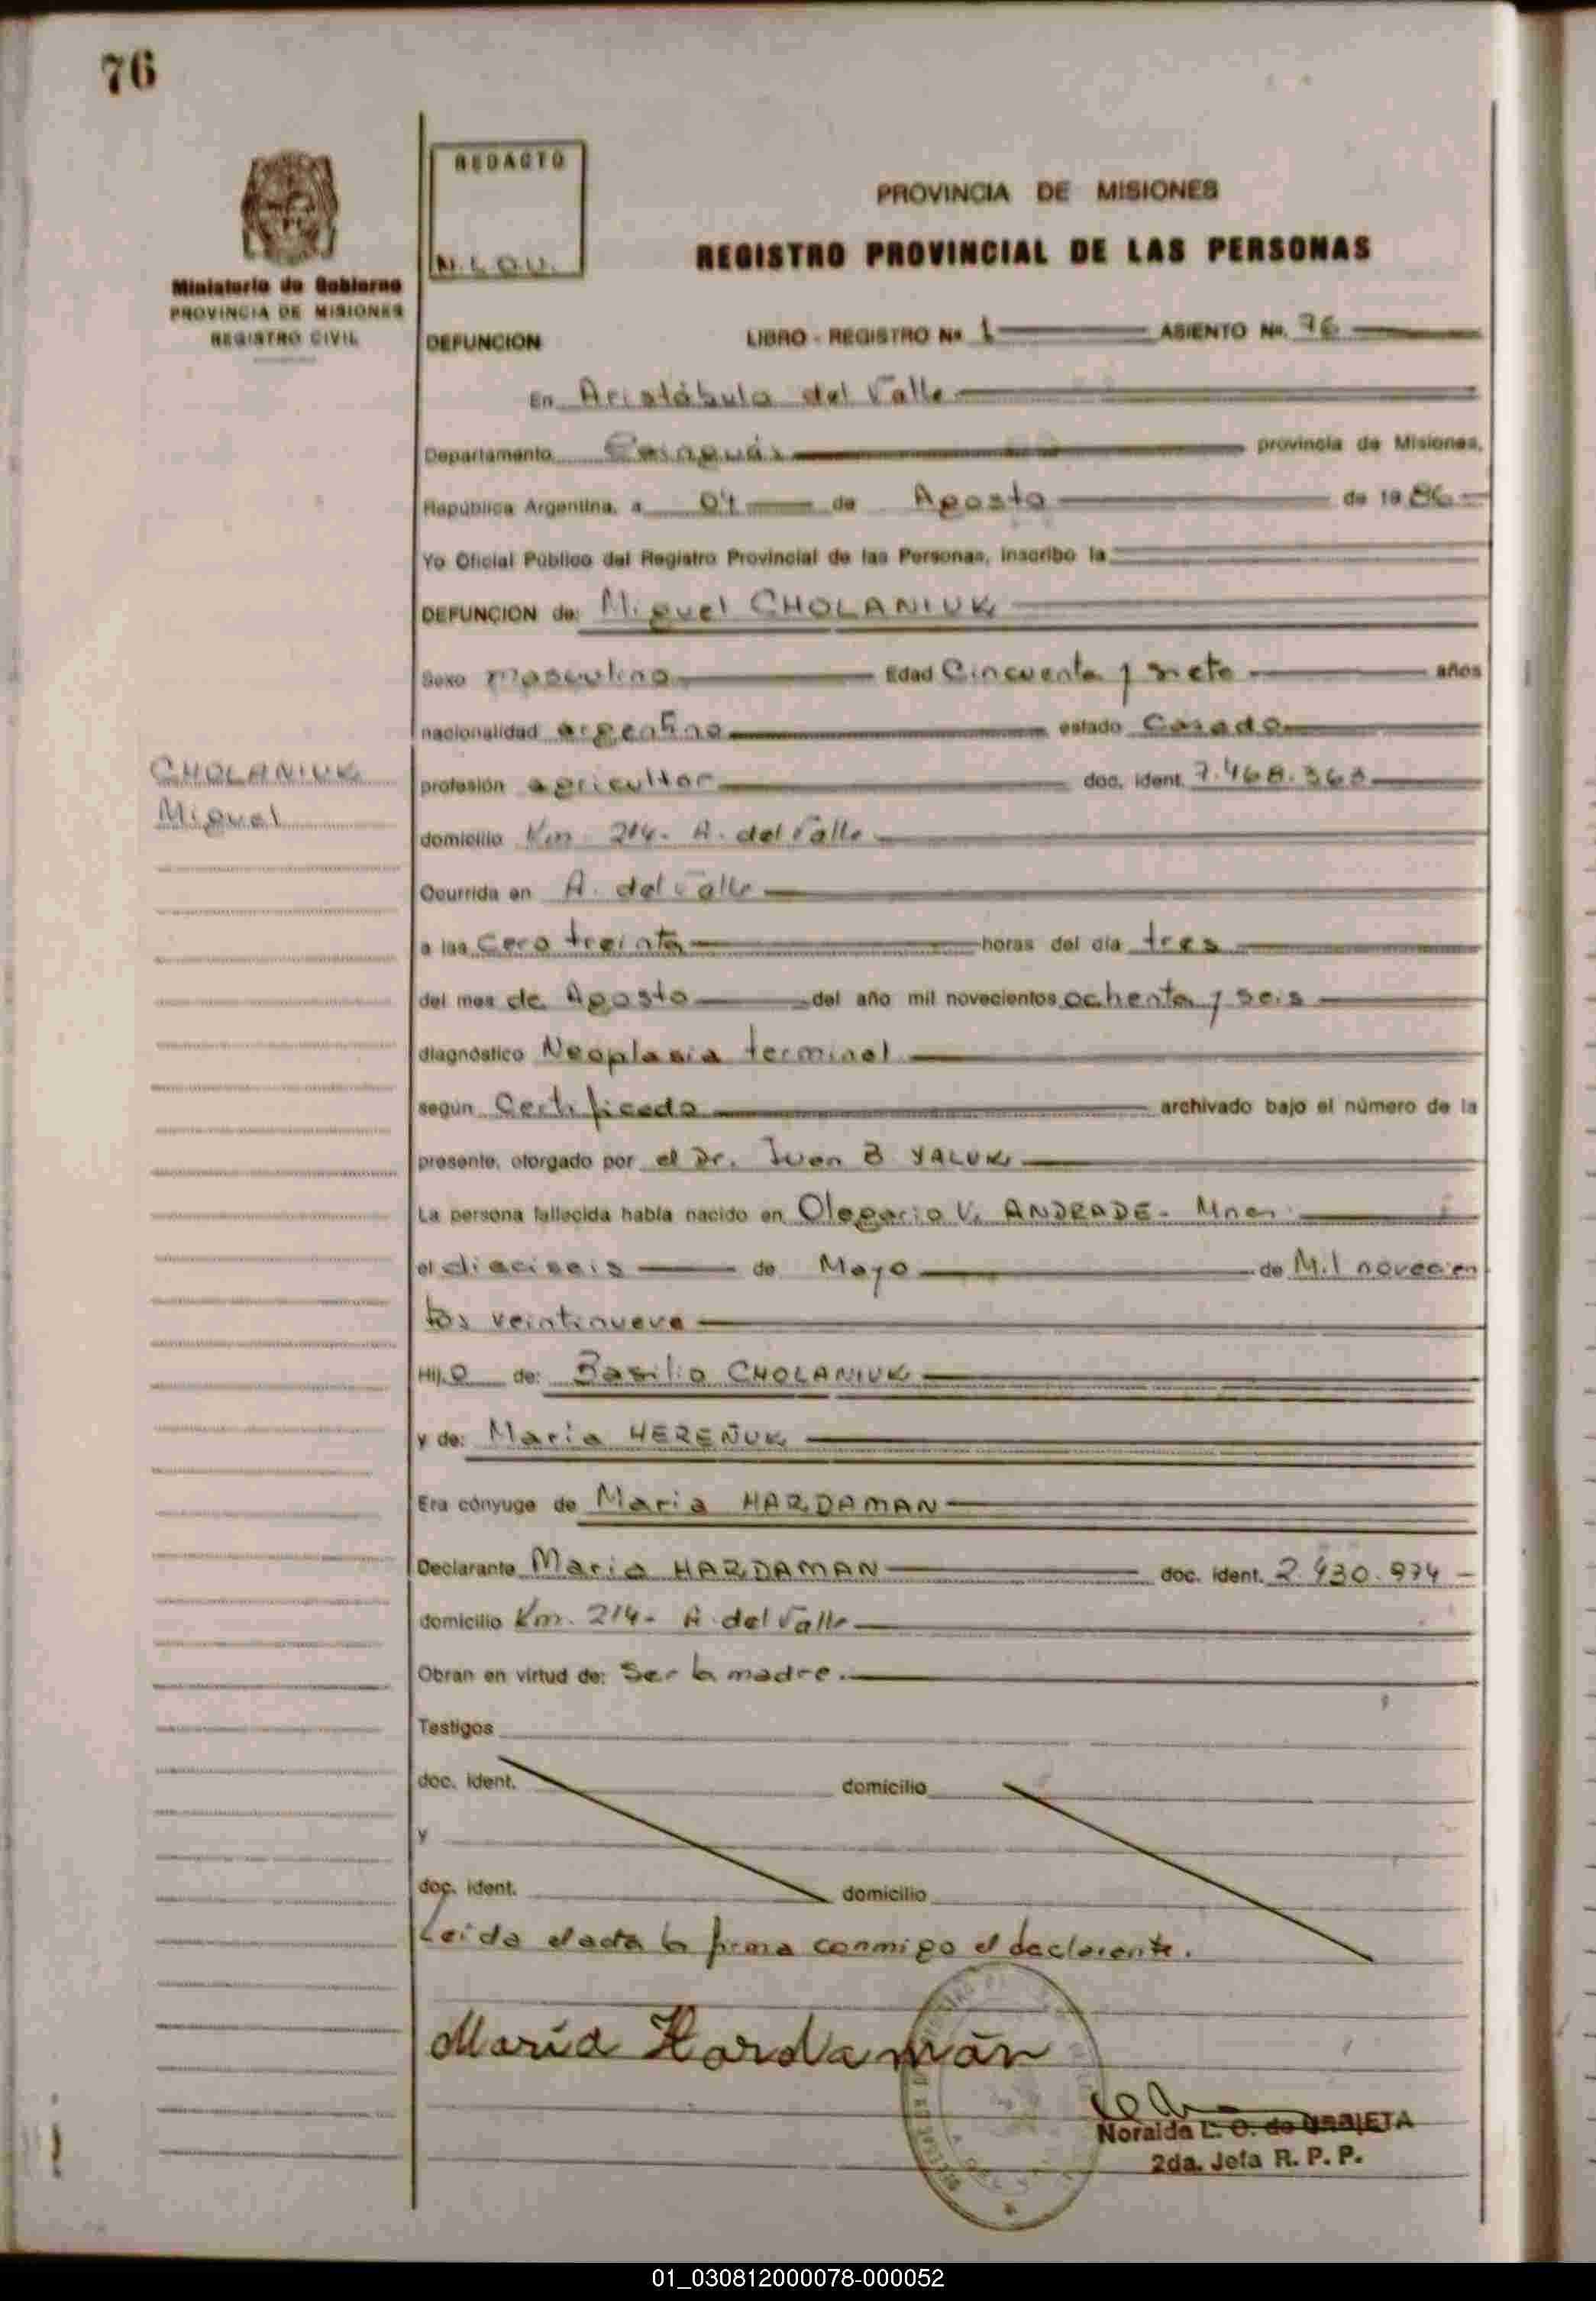 76
REDACTO
N. L. O. U.
Ministerio de Gobierno
PROVINCIA DE MISIONES
REGISTRO CIVIL
PROVINCIA DE MISIONES
REGISTRO PROVINCIAL DE LAS PERSONAS
DEFUNCION LIBRO - REGISTRO Nº 1 ASIENTO Nº. 76
En Aristóbulo del Valle
Departamento Cainguás provincia de Misiones,
República Argentina, a 04 de Agosto de 1986
Yo Oficial Público del Registro Provincial de las Personas, inscribo la
DEFUNCION de: Miguel CHOLANIUK
Sexo masculino Edad Cincuenta y siete años
nacionalidad argentino estado Casado
CHOLANIUK
Miguel
profesión agricultor doc. ident. 7.468.363
domicilio Km 214- A. del Valle
Ocurrida en A. del Valle
a las Cero treinta horas del día tres
del mes de Agosto del año mil novecientos ochenta y seis
diagnóstico Neoplasia terminal
según Certificado archivado bajo el número de la
presente, otorgado por el Dr. Juan B YALUK
La persona fallecida había nacido en Olegario V. ANDRADE- Mnes
el dieciseis de Mayo de Mil novecien
tos veintinueve
Hijo de: Basilio CHOLANIUK
y de: Maria HEREÑUK
Era cónyuge de Maria HARDAMAN
Declarante Maria HARDAMAN doc. ident. 2.430.974
domicilio Km. 214- A del Valle
Obran en virtud de: Ser la madre.
Testigos
doc. ident. domicilio
y
doc. ident. domicilio
Leida el acta la firma conmigo el declarente.
María Hardamán
Noraida L. O. de URRIETA
2da. Jefa R. P. P.
01_030812000078-000052